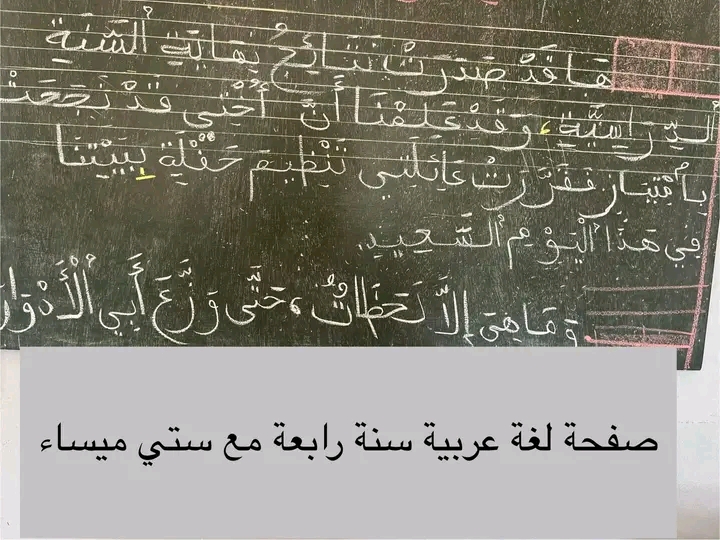 هَا قَدْ صَدَرَتْ نَتَائِجُ نِهَايَةِ ٱلسَّنَةِ
ٱلدِّرَاسِيَّةِ، وَقَدْ عَلِمْنَا أَنَّ أُخْتِي قَدْ نَجَحَتْ
بِٱمْتِيَازٍ فَقَرَّرَتْ عَائِلَتِي تَنْظِيمَ حَفْلَةٍ بِبَيْتِنَا
فِي هَذَا ٱلْيَوْمِ ٱلسَّعِيدِ.
وَمَا هِيَ إِلَّا لَحَظَاتٌ، حَتَّى وَزَّعَ أَبِي ٱلْأَدْوَارَ
صفحة لغة عربية سنة رابعة مع ستي ميساء